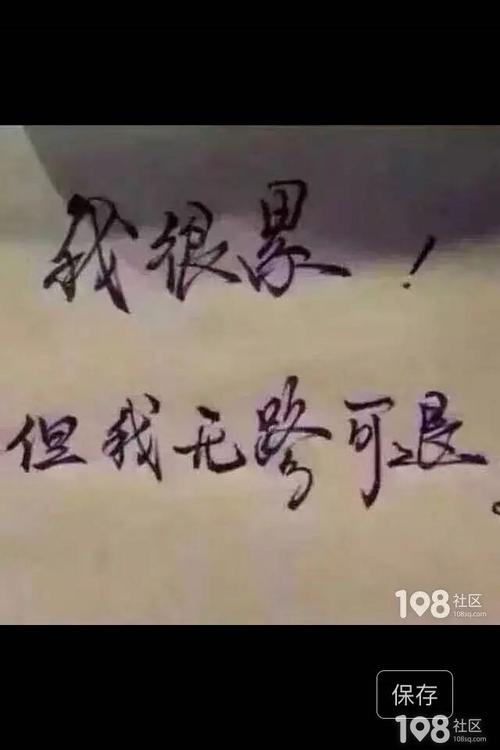 我很累！
但我无路可退。
108社区
108sq.com
保存
108社区
108sq.com